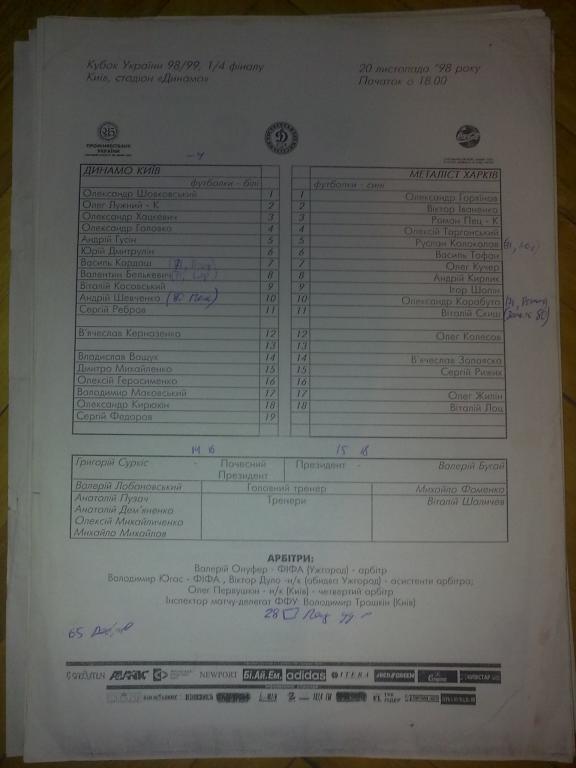 Кубок України 98/99, 1/4 фіналу
Київ, стадіон «Динамо»
20 листопада '98 року
Початок о 18.00
ПРОМІНВЕСТБАНК
УКРАЇНИ
ДИНАМО КИЇВ
МЕТАЛІСТ ХАРКІВ
футболки - білі
футболки - сині
Олександр Шовковський 1
1 Олександр Горяінов
Олег Лужний - К 2
2 Віктор Іваненко
Олександр Хацкевич 3
3 Роман Пец - К
Олександр Головко 4
4 Олексій Торганський
Андрій Гусін 5
5 Руслан Колоколов
Юрій Дмитрулін 6
6 Василь Тофан
Василь Кардаш 7
7 Олег Кучер
Валентин Белькевич 8
8 Андрій Кирлик
Віталій Косовський 9
9 Ігор Шопін
Андрій Шевченко 10
10 Олександр Карабута
Сергій Ребров 11
11 Віталій Скиш
В'ячеслав Керназенко 12
12 Олег Колесов
13
13
Владислав Ващук 14
14 В'ячеслав Запояска
Дмитро Михайленко 15
15 Сергій Рижих
Олексій Герасименко 16
16
Володимир Маковський 17
17 Олег Жилін
Олександр Кирюхін 18
18 Віталій Лоц
Сергій Федоров 19
Григорій Суркіс - Почесний Президент
Президент - Валерій Бугай
Валерій Лобановський Головний тренер Михайло Фоменко
Анатолій Пузач Тренери Віталій Шаличев
Анатолій Дем'яненко
Олексій Михайличенко
Михайло Михайлов
АРБІТРИ:
Валерій Онуфер - ФІФА (Ужгород) - арбітр
Володимир Югас - ФІФА , Віктор Дуло -н/к (обидва Ужгород) - асистенти арбітра;
Олег Первушкин - н/к (Київ) - четвертий арбітр
Інспектор матчу-делегат ФФУ Володимир Трошкін (Київ)
NEWPORT Бі.Ай.Ем. adidas ITERA